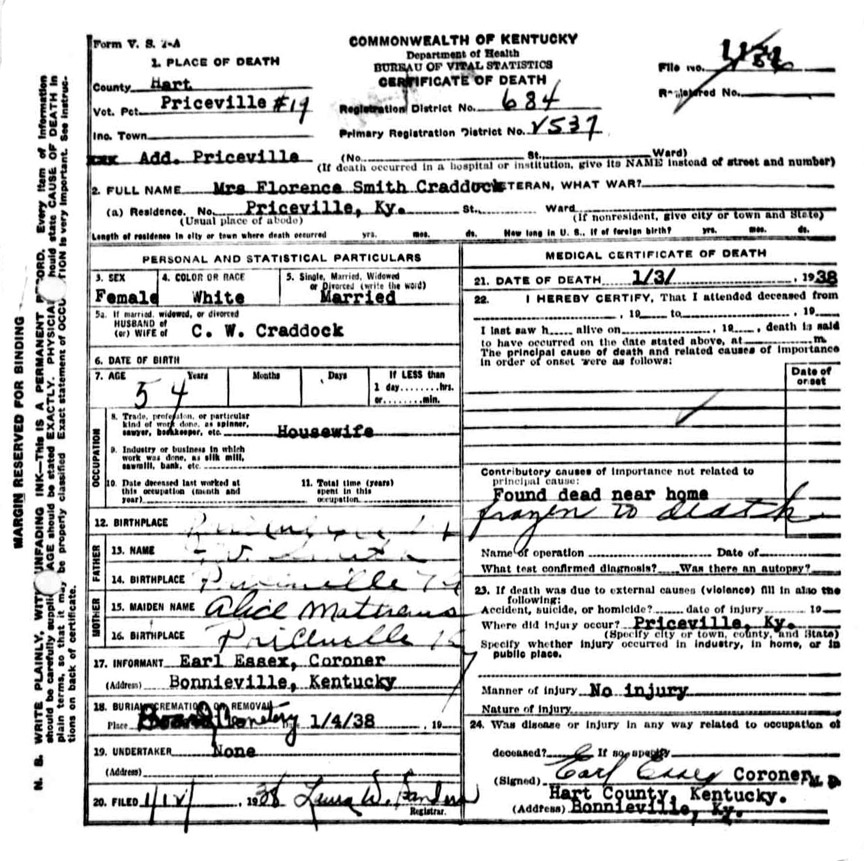 Form V. S. 1-A
COMMONWEALTH OF KENTUCKY
Department of Health
BUREAU OF VITAL STATISTICS
CERTIFICATE OF DEATH
File No.
Registered No.
1. PLACE OF DEATH
County Hart
Vot. Pct. Priceville #19
Registration District No. 684
Inc. Town
Primary Registration District No. V537
xxx Add. Priceville (No. St., Ward)
(If death occurred in a hospital or institution, give its NAME instead of street and number)
2. FULL NAME Mrs Florence Smith Craddock VETERAN, WHAT WAR?
(a) Residence. No. Priceville, Ky. St., Ward
(Usual place of abode) (If nonresident, give city or town and State)
Length of residence in city or town where death occurred yrs. mos. ds. How long in U. S., if of foreign birth? yrs. mos. ds.
PERSONAL AND STATISTICAL PARTICULARS
3. SEX Female
4. COLOR OR RACE White
5. Single, Married, Widowed
or Divorced (write the word)
Married
5a. If married, widowed, or divorced
HUSBAND of
(or) WIFE of C. W. Craddock
6. DATE OF BIRTH
7. AGE 54 Years Months Days If LESS than
1 day........hrs.
or........min.
OCCUPATION
8. Trade, profession, or particular
kind of work done, as spinner,
sawyer, bookkeeper, etc. Housewife
9. Industry or business in which
work was done, as silk mill,
sawmill, bank, etc.
10. Date deceased last worked at
this occupation (month and
year)
11. Total time (years)
spent in this
occupation
12. BIRTHPLACE
FATHER
13. NAME Smith
14. BIRTHPLACE Priceville Ky
MOTHER
15. MAIDEN NAME Alice
16. BIRTHPLACE Priceville K
17. INFORMANT Earl Essex, Coroner
(Address) Bonnieville, Kentucky
18. BURIAL, CREMATION, OR REMOVAL
Place Cemetery 1/4/38 , 19
19. UNDERTAKER None
(Address)
20. FILED 1/12/ , 1938 Laura W.
Registrar.
MEDICAL CERTIFICATE OF DEATH
21. DATE OF DEATH 1/3/ , 1938
22. I HEREBY CERTIFY, That I attended deceased from
, 19 to , 19
I last saw h alive on , 19 , death is said
to have occurred on the date stated above, at m.
The principal cause of death and related causes of importance
in order of onset were as follows:
Date of
onset
Contributory causes of importance not related to
principal cause:
Found dead near home
frozen to death
Name of operation Date of
What test confirmed diagnosis? Was there an autopsy?
23. If death was due to external causes (violence) fill in also the
following:
Accident, suicide, or homicide? date of injury 19
Where did injury occur? Priceville, Ky.
(Specify city or town, county, and State)
Specify whether injury occurred in industry, in home, or in
public place.
Manner of injury No injury
Nature of injury
24. Was disease or injury in any way related to occupation of
deceased? If so, specify
(Signed) Earl Essex Coroner, M. D.
Hart County, Kentucky.
(Address) Bonnieville, Ky.
MARGIN RESERVED FOR BINDING
N. B. WRITE PLAINLY, WITH UNFADING INK—THIS IS A PERMANENT RECORD. Every item of information
should be carefully supplied. AGE should be stated EXACTLY. PHYSICIANS should state CAUSE OF DEATH in
plain terms, so that it may be properly classified. Exact statement of OCCUPATION is very important. See instruc-
tions on back of certificate.